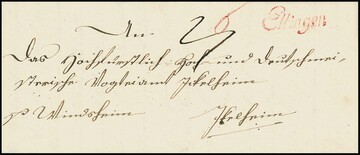 An
Ellingen
Das Hochfürstlich Hoch und Deutschmei-
sterische Vogteiamt Ickelheim
zu Windsheim
Ickelheim